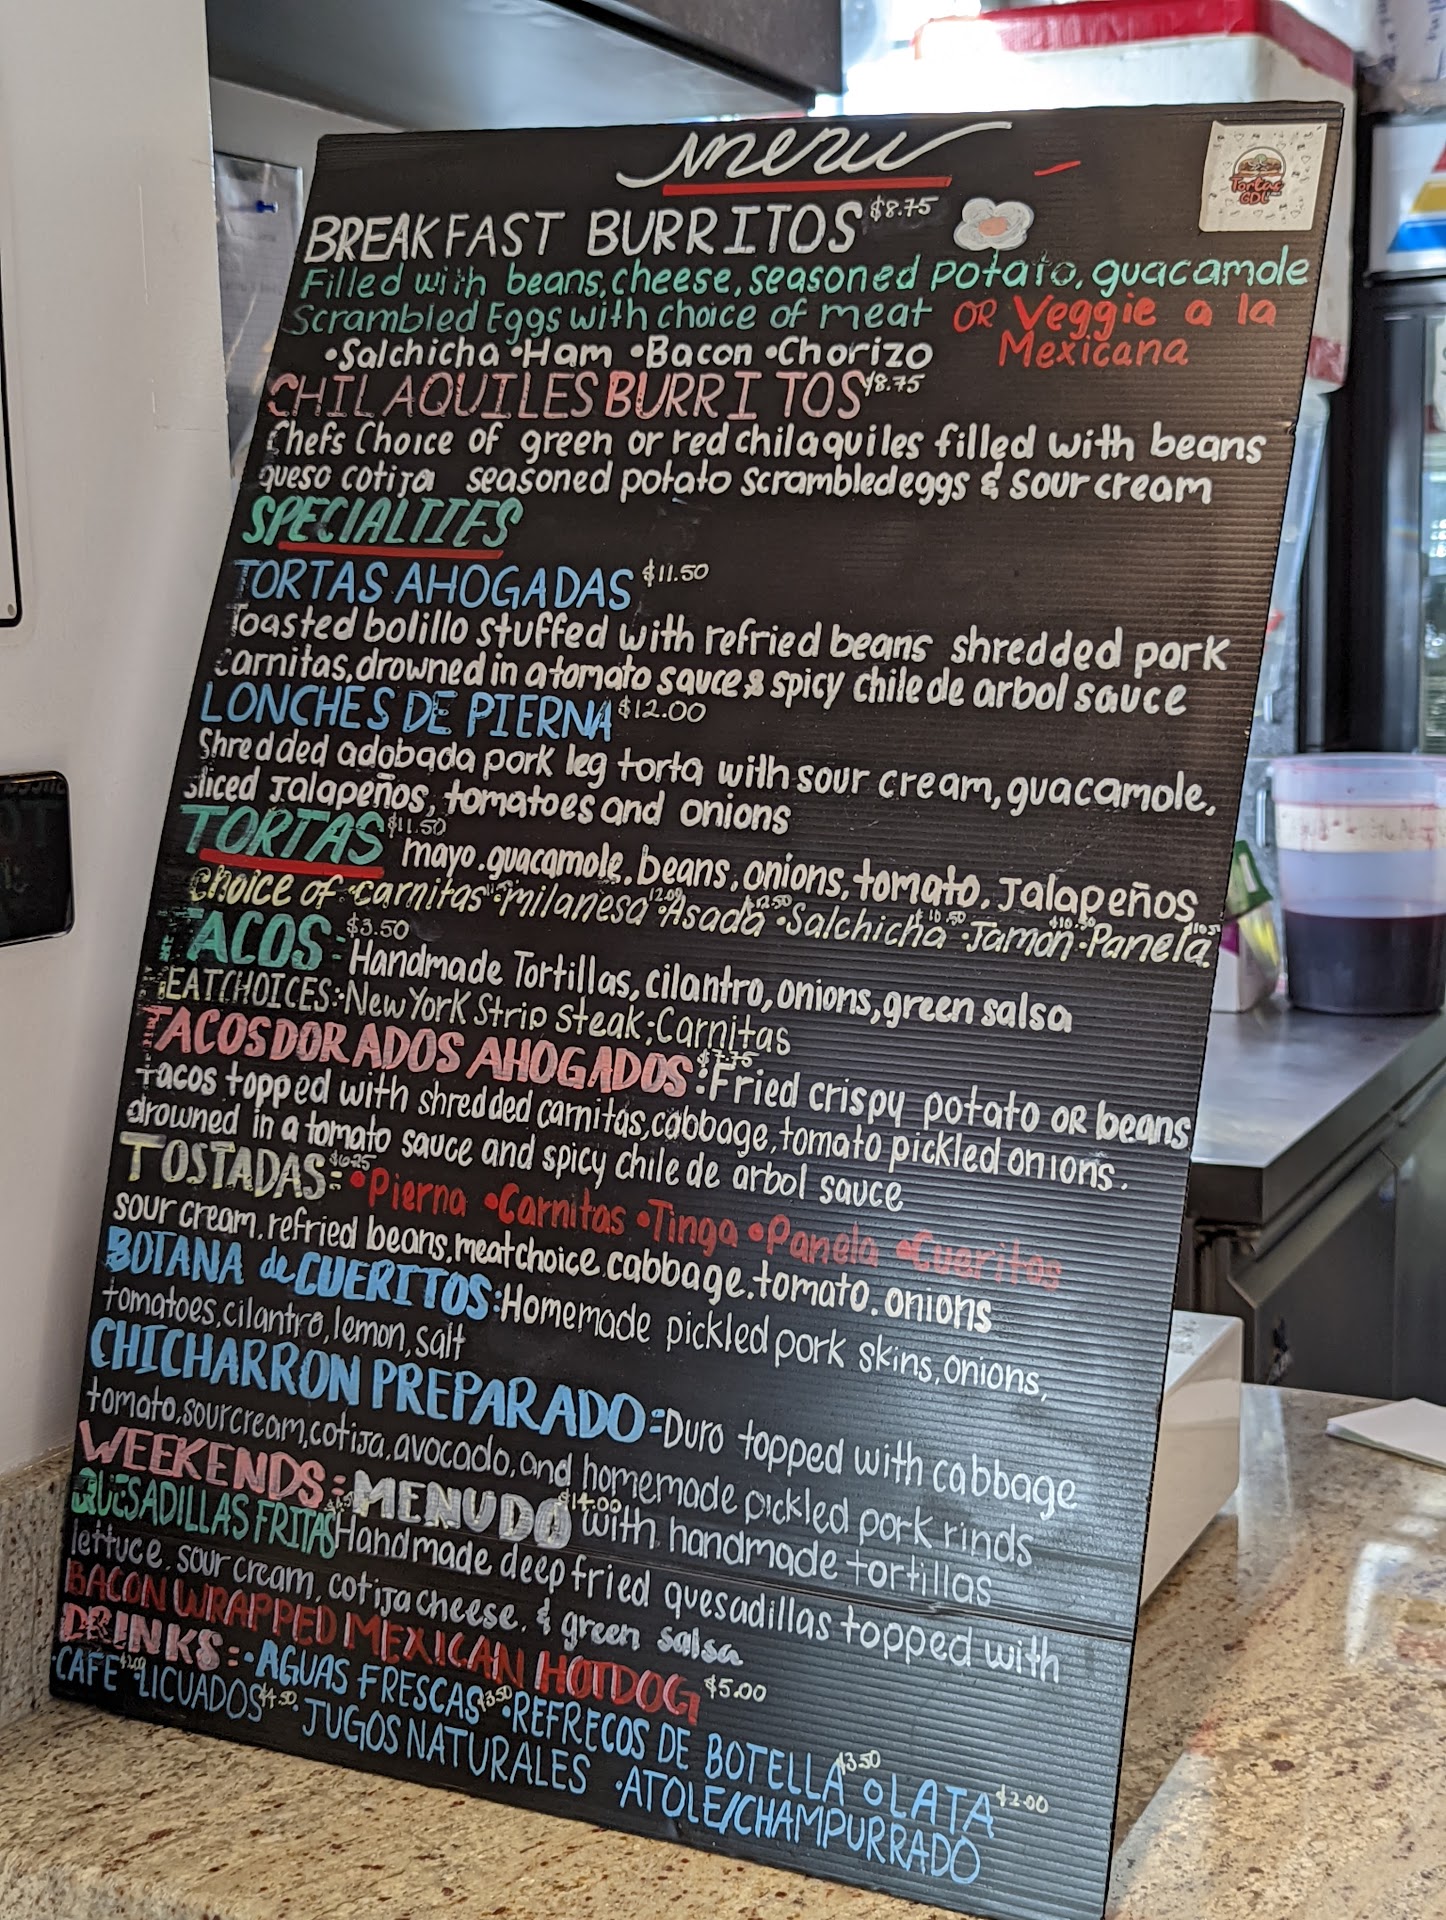 menu
Tortas
GDL
BREAKFAST BURRITOS $8.75
Filled with beans, cheese, seasoned potato, guacamole
Scrambled Eggs with choice of meat OR Veggie a la
Mexicana
•Salchicha •Ham •Bacon •Chorizo
CHILAQUILES BURRITOS $8.75
Chefs Choice of green or red chilaquiles filled with beans
queso cotija seasoned potato scrambled eggs & sour cream
SPECIALTIES
TORTAS AHOGADAS $11.50
Toasted bolillo stuffed with refried beans shredded pork
carnitas, drowned in a tomato sauce & spicy chile de arbol sauce
LONCHES DE PIERNA $12.00
Shredded adobada pork leg torta with sour cream, guacamole,
sliced Jalapeños, tomatoes and onions
TORTAS $11.50 mayo. guacamole, beans, onions, tomato, Jalapeños
choice of •carnitas •milanesa 12.00 •Asada $12.50 •Salchicha $10.50 •Jamon $10.50 •Panela.
TACOS: $3.50 Handmade Tortillas, cilantro, onions, green salsa
MEAT CHOICES: •New York Strip Steak •Carnitas
TACOS DORADOS AHOGADOS: $7.75 Fried crispy potato OR beans
tacos topped with shredded carnitas, cabbage, tomato pickled onions.
drowned in a tomato sauce and spicy chile de arbol sauce
TOSTADAS: $6.25 •Pierna •Carnitas •Tinga •Panela •Cueritos
sour cream, refried beans, meat choice. cabbage. tomato. onions
BOTANA de CUERITOS: Homemade pickled pork skins, onions,
tomatoes, cilantro, lemon, salt
CHICHARRON PREPARADO: Duro topped with cabbage
tomato, sour cream, cotija, avocado, and homemade pickled pork rinds
WEEKENDS: MENUDO $14.00 with handmade tortillas
QUESADILLAS FRITAS Handmade deep fried quesadillas topped with
lettuce, sour cream, cotija cheese, & green salsa
BACON WRAPPED MEXICAN HOTDOG $5.00
DRINKS: •AGUAS FRESCAS $3.50 •REFRECOS DE BOTELLA $3.50 o LATA $2.00
•CAFE •LICUADOS $4.50 •JUGOS NATURALES •ATOLE/CHAMPURRADO